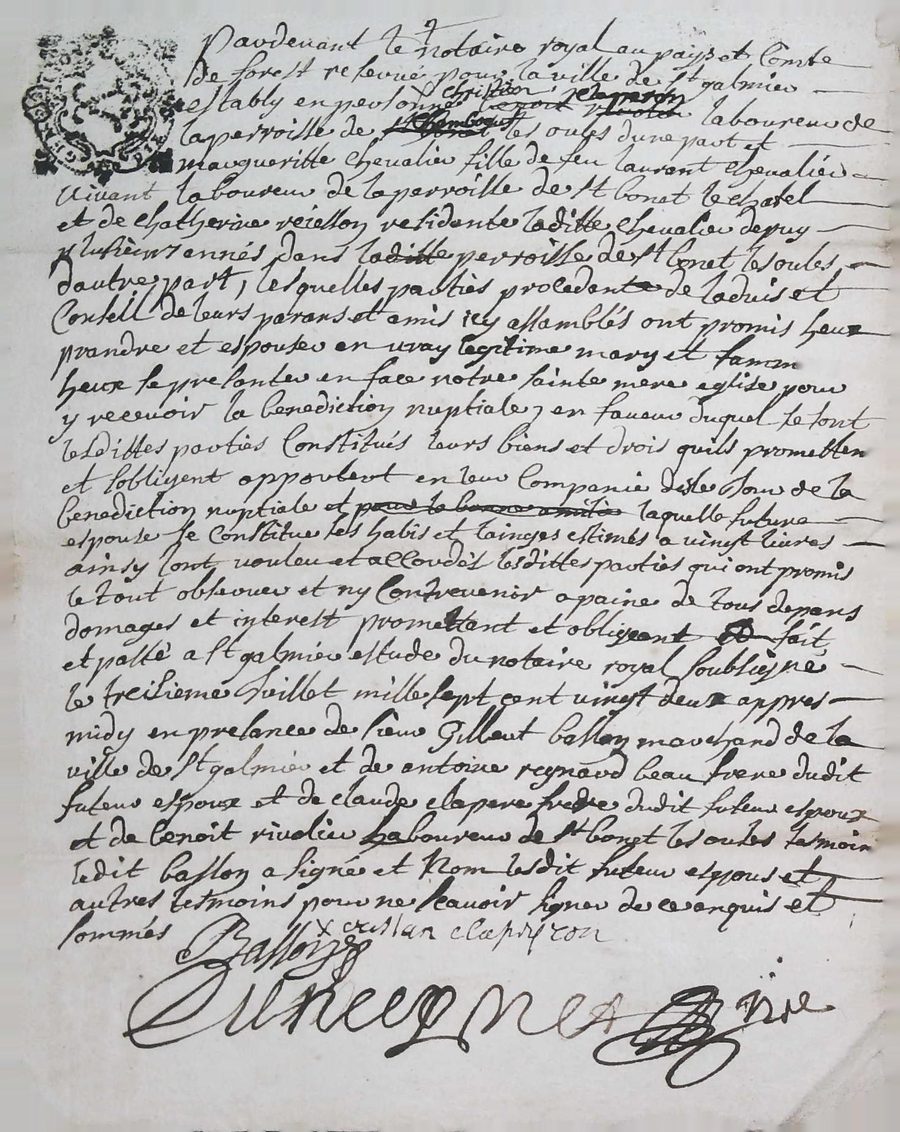 Pardevant le notaire royal au pays et Comte
de forest reservué pour la ville de st galmier
estably en personne christien claperon laboureur de
laperroisse de Chambœuf les oules dune part et
margueritte chevalier fille de feu laurant chevalier
vivant laboureur de laperroisse de st bonet le chatel
et de chatherine residente laditte chevalier depuy
plusieurs ennés dans laditte perroisse de st bonet les oules
dautre part, lesquelles parties procedent de ladvis et
Conseil de leurs parans et amis icy assamblés ont promis heux
prandre et espouser en vray legitime mary et famm
heux se presanter en face notre sainte mere eglise pour
y recevoir la benediction nuptiale, en faveur duquel se sont
lesdittes parties Constitués leurs biens et drois quils prometten
et sobligent apporter en leur Companie des le Jour de la
benediction nuptiale et pour la bonne amitié laquelle future
espouse se Constitue ses habis et lainges estimés a vingt livres
ainsy sont vouleu et accordés lesdittes parties qui ont promis
le tout observer et ny Contrevenir a paine de tous depans
domages et interest promettant et obligeant fait
et passé a st galmier estude du notaire royal soubsigne
le treisieme Juillet mille sept cent vingt deux appres
midy en presance de sieur Gilbert basson marchand de la
ville de st galmier et de antoine reynaud beau frere dudit
futeur espoux et de claude clapere fredre dudit futeur espoux
et de benoit rivolier laboureur de st bonet les oules tesmoin
ledit basson a signé et Nom lesdit futeur espous et
autres tesmoins pour ne scavoir signer de ce enquis et
sommés
Basson